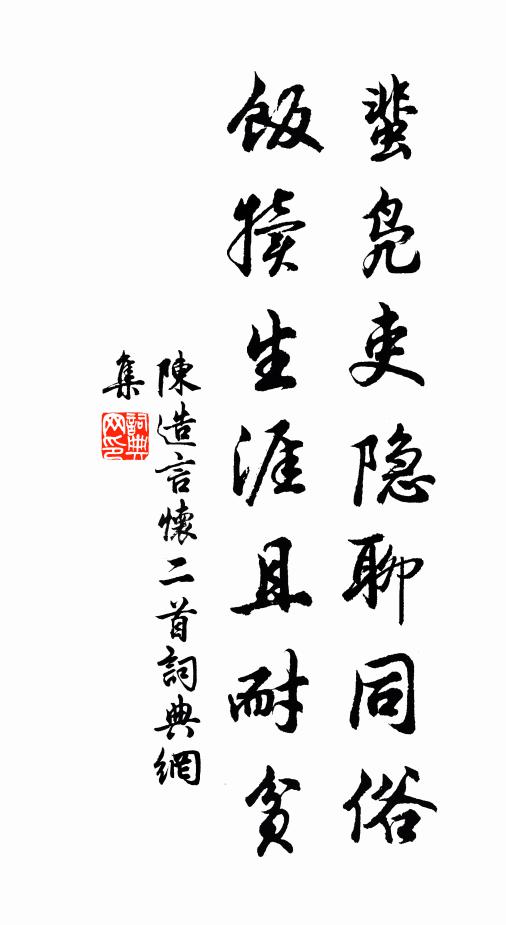 蜚凫吏隐聊同俗
飯犢生涯且耐贫
陳造言懷二首詞典網
集
詞典
网印